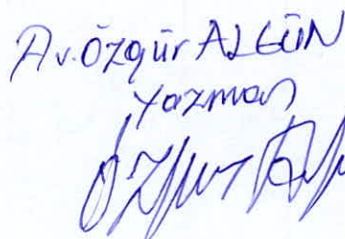 Av. Özgür ALGÜN
Yazman